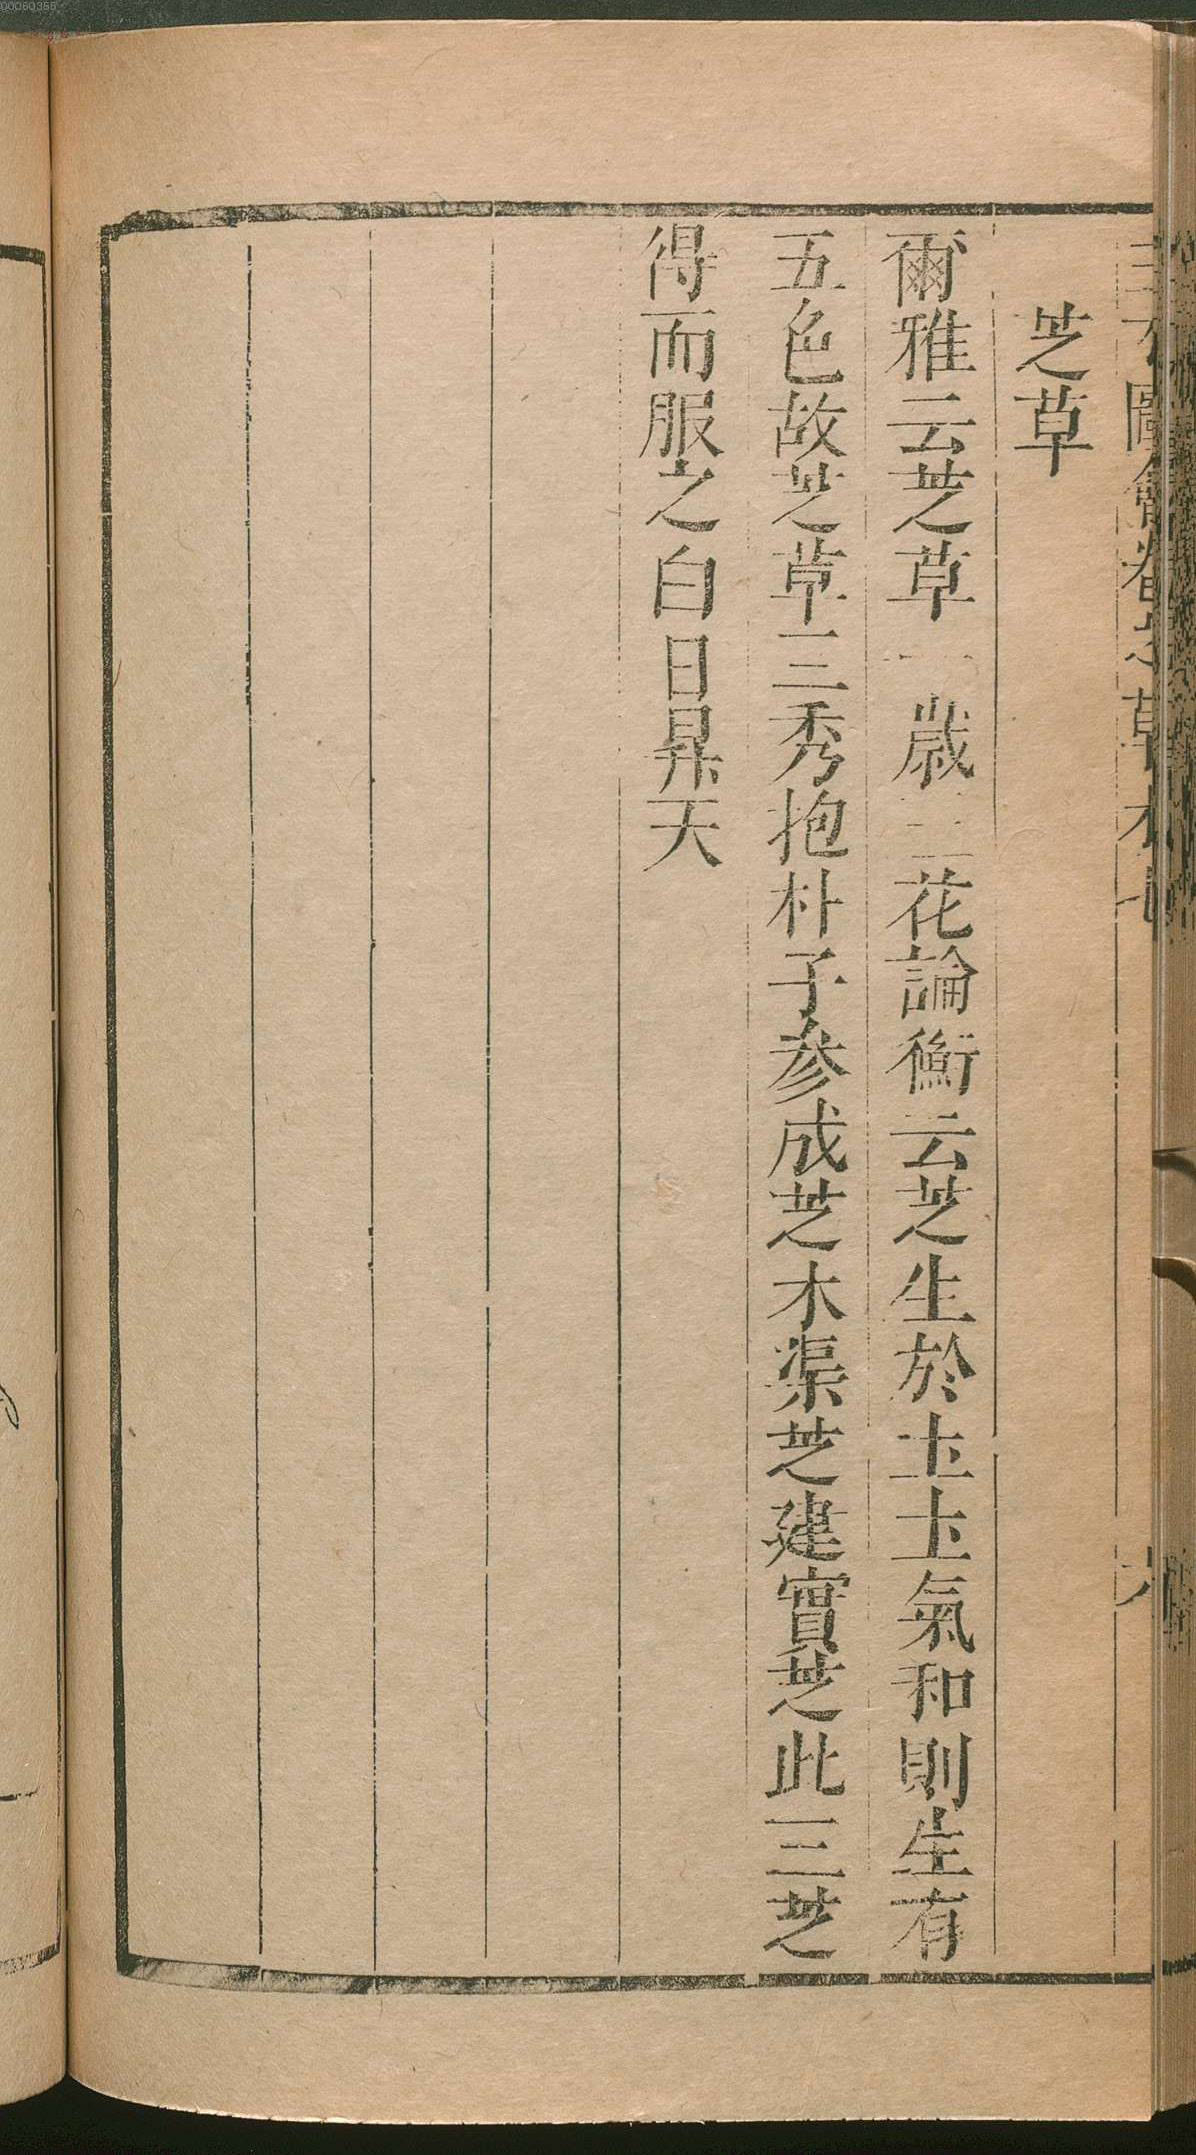 00060355
圖會卷之草木七
芝草
爾雅云芝草一歲三花論衡云芝生於土土氣和則生有
五色故芝草三秀抱朴子参成芝木渠芝建實芝此三芝
得而服之白日昇天